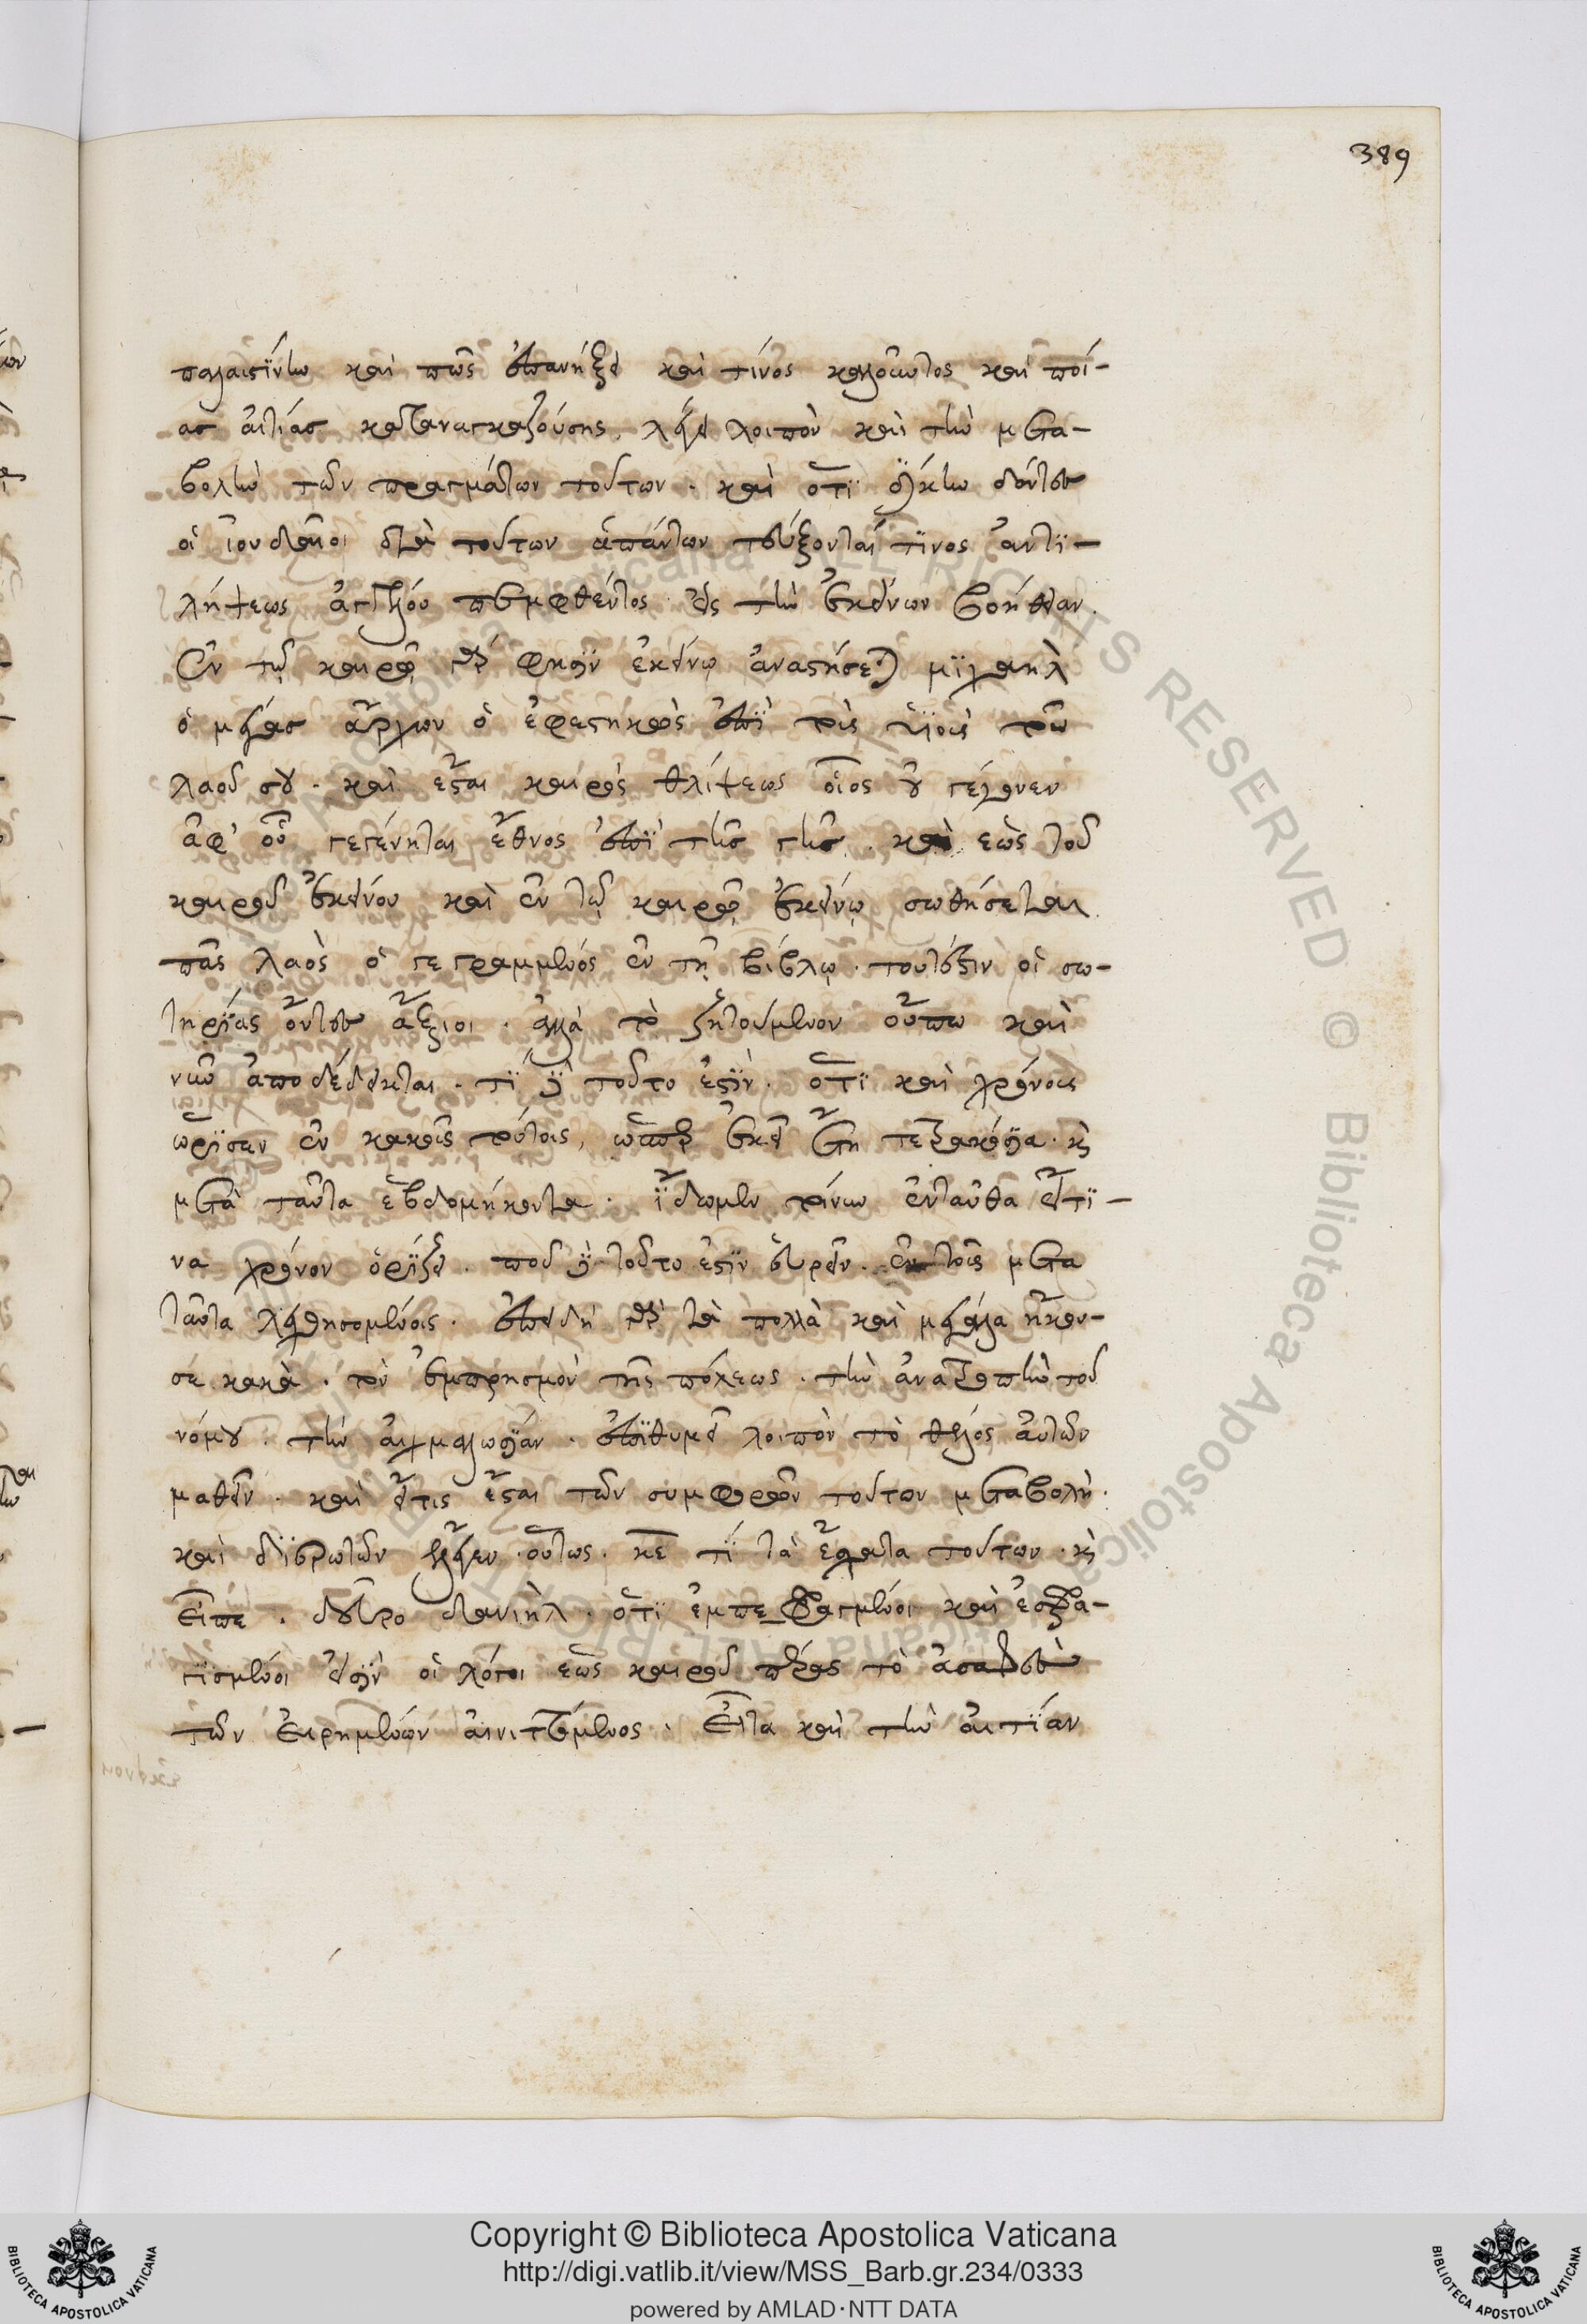 389
παλαιστίνην καὶ πῶς ἐπανήξει καὶ τίνος καλοῦντος καὶ ποί-
ας αἰτίας κατανασκαζούσης. λέγει λοιπὸν καὶ τὴν μετα-
βολὴν τῶν πραγμάτων τούτων. καὶ ὅτι δίκην δόντες
οἱ ἰουδαῖοι διὰ τούτων ἁπάντων τεύξονταί τινος ἀντι-
λήψεως ἀγγέλου πεμφθέντος εἰς τὴν ἐκείνων βοήθειαν.
Ἐν τῷ καιρῷ γάρ φησιν ἐκείνῳ ἀναστήσεται μιχαὴλ
ὁ μέγας ἄρχων ὁ ἐφεστηκὼς ἐπὶ τοῖς υἱοῖς τοῦ
λαοῦ σου. καὶ ἔσται καιρὸς θλίψεως οἷος οὐ γέγονεν
ἀφ' οὗ γεγένηται ἔθνος ἐπὶ τῆς γῆς. καὶ ἕως τοῦ
καιροῦ ἐκείνου καὶ ἐν τῷ καιρῷ ἐκείνῳ σωθήσεται
πᾶς λαὸς ὁ γεγραμμένος ἐν τῇ βίβλῳ. τουτέστιν οἱ σω-
τηρίας ὄντες ἄξιοι. ἀλλὰ τὸ ζητούμενον οὔπω καὶ
νῦν ἀποδέδεικται. τί δὲ τοῦτο ἐστίν. ὅτι καὶ χρόνοις
ὥρισεν ἐν κακοῖς τούτοις, ὥσπερ ἐκεῖ ἔτη τετρακόσια. καὶ
μετὰ ταῦτα ἑβδομήκοντα. ἴδωμεν τοίνυν ἐνταῦθα εἴ τι-
να χρόνον ὁρίζει. ποῦ δὲ τοῦτο ἐστὶν εὑρεῖν. ἐν τοῖς μετα
ταῦτα λεχθησομένοις. ἐπειδὴ γὰρ τὰ πολλὰ καὶ μεγάλα ἤκου-
σε κακὰ. τὸν ἐμπρησμὸν τῆς πόλεως. τὴν ἀνατροπὴν τοῦ
νόμου. τὴν αἰχμαλωσίαν. ἐπιθυμεῖ λοιπὸν τὸ τέλος αὐτῶν
μαθεῖν. καὶ εἴ τις ἔσται τῶν συμφορῶν τούτων μεταβολὴ.
καὶ διερωτῶν ἔλεγεν οὕτως. κε τί τὰ ἔσχατα τούτων. καὶ
εἶπε. δεῦρο δανιὴλ. ὅτι ἐμπεφραγμένοι καὶ ἐσφρα-
γισμένοι εἰσὶν οἱ λόγοι ἕως καιροῦ πέρας τὸ ἀσαφὲς
τῶν εἰρημένων αἰνιττόμενος. εἶτα καὶ τὴν αἰτίαν
Copyright © Biblioteca Apostolica Vaticana
http://digi.vatlib.it/view/MSS_Barb.gr.234/0333
powered by AMLAD·NTT DATA